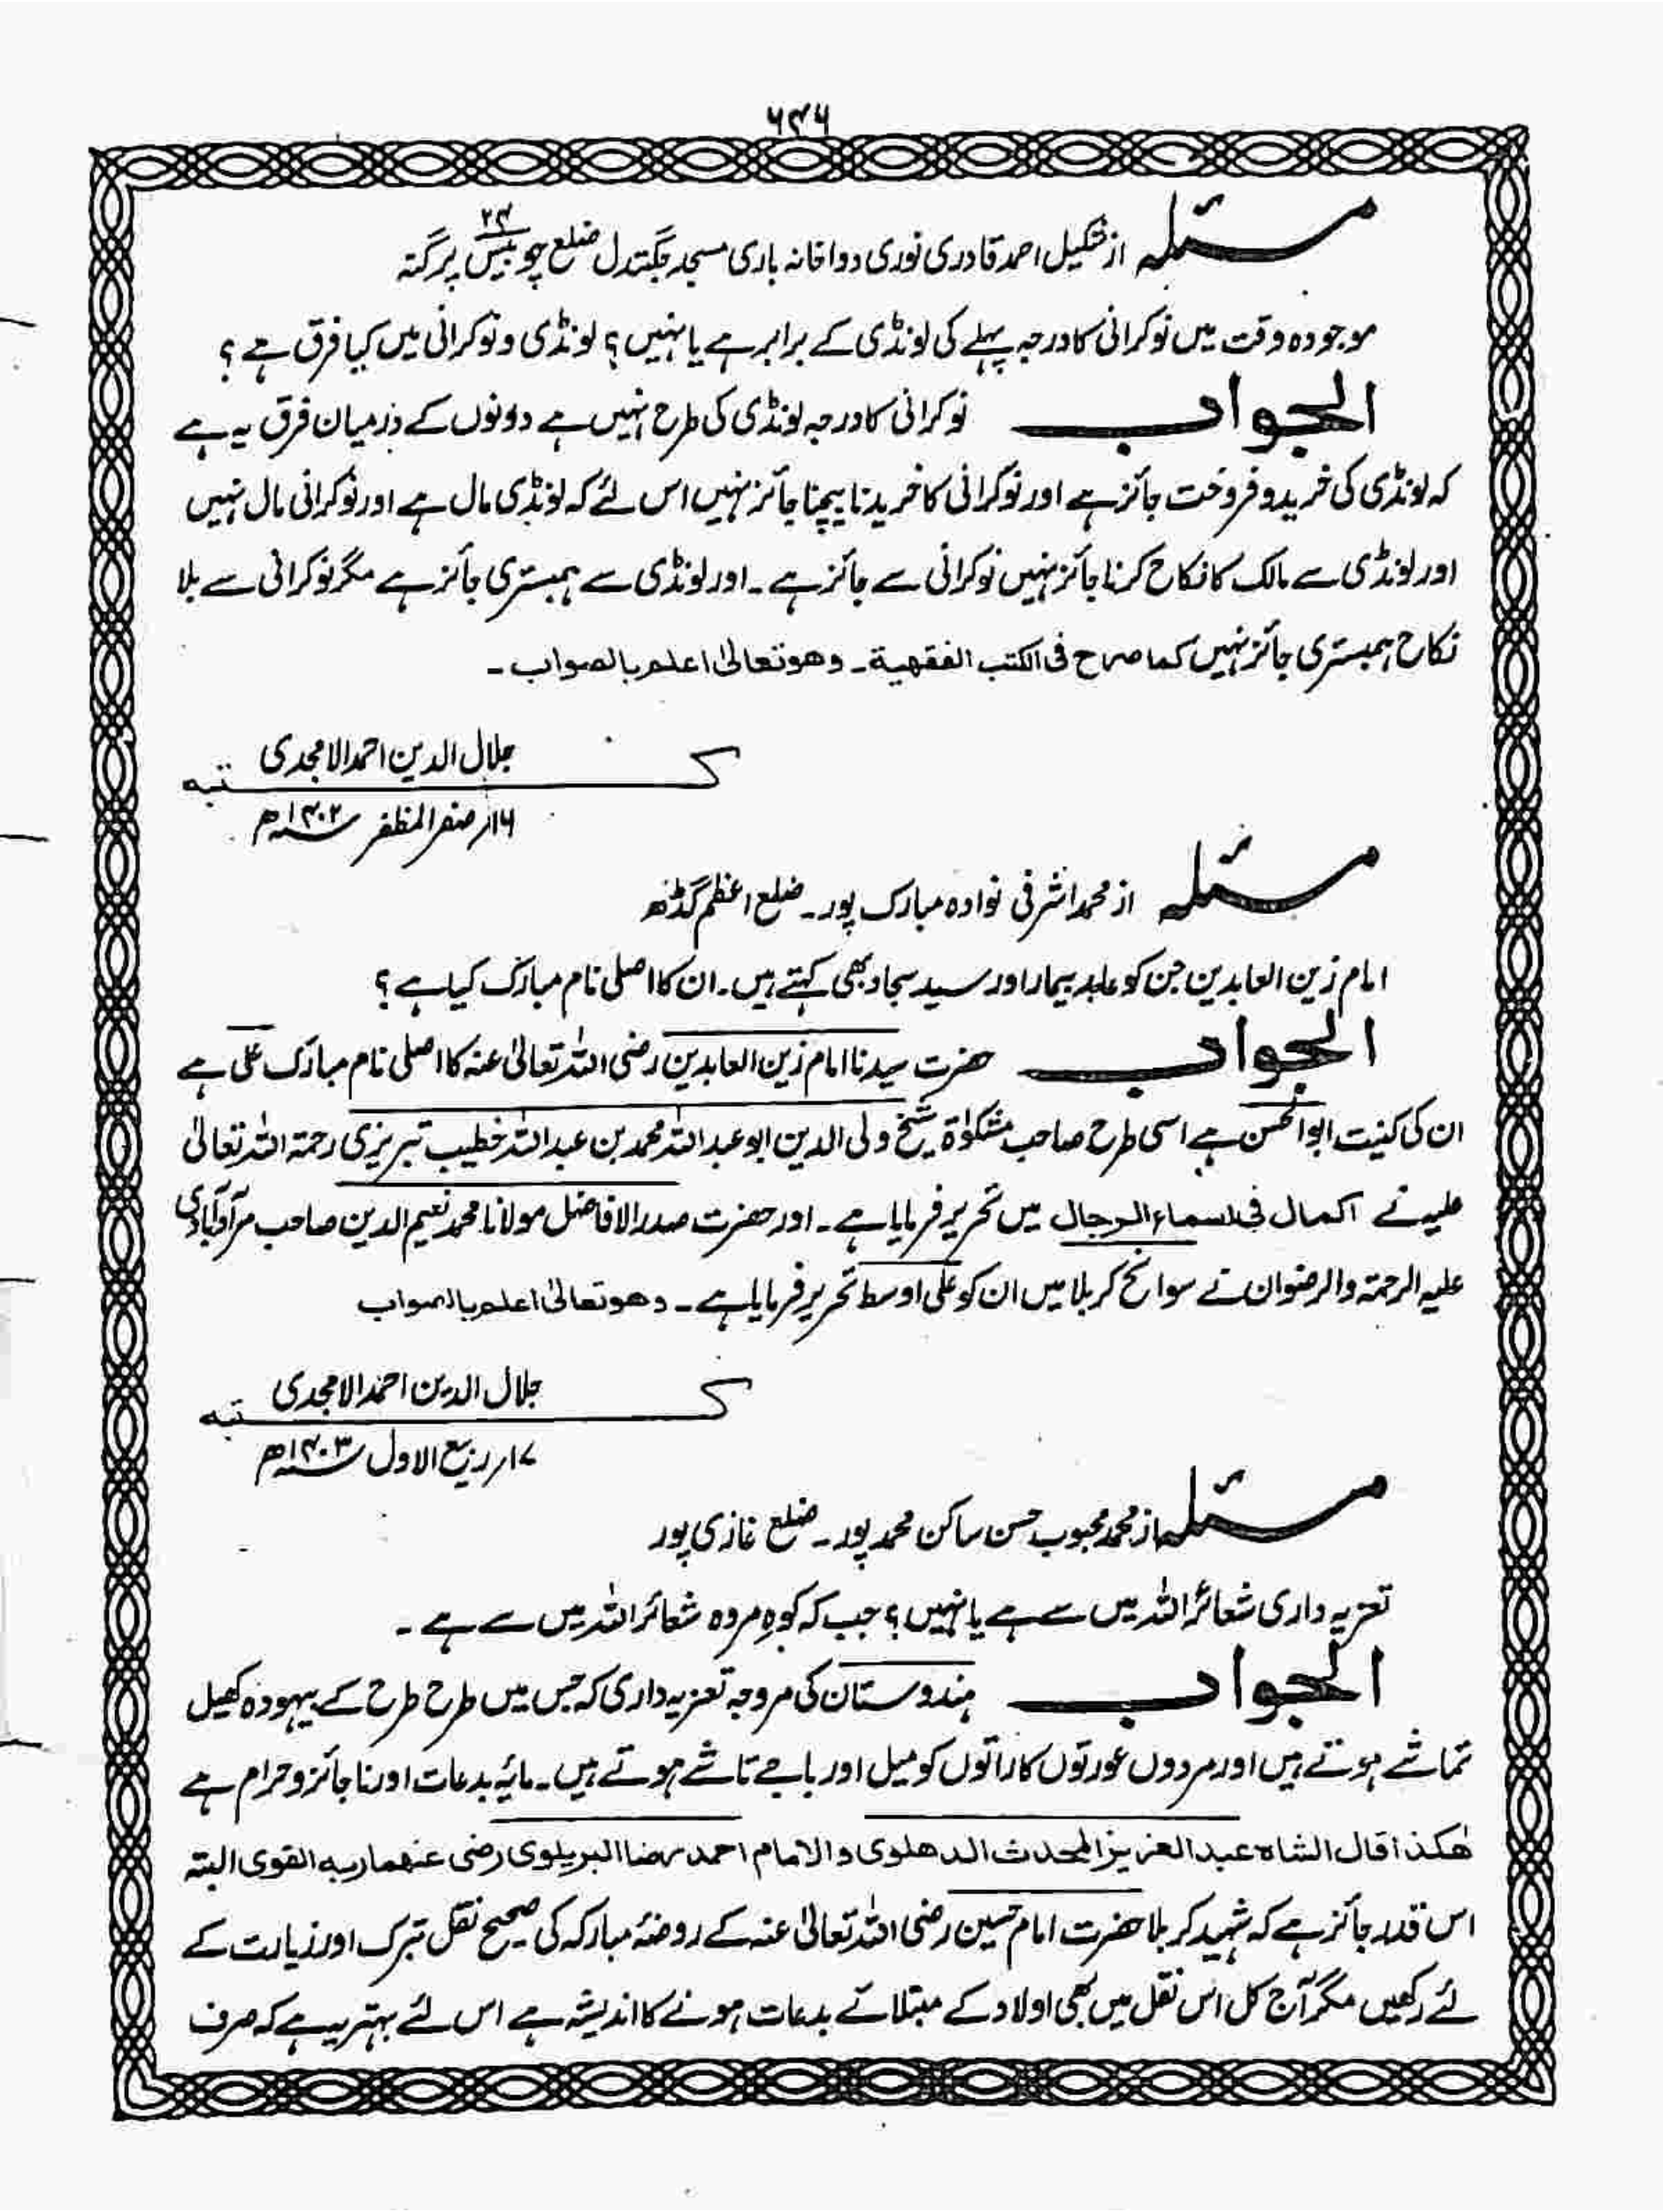 ۶۴۶
مسئلہ از شکیل احمد قادری نوری دواخانہ باری مسجد جگتدل ضلع چوبیس ۲۴ پرگنہ
موجودہ وقت میں نوکرانی کا درجہ پہلے کی لونڈی کے برابر ہے یا نہیں؟ لونڈی و نوکرانی میں کیا فرق ہے؟
الجواب نوکرانی کا درجہ لونڈی کی طرح نہیں ہے دونوں کے درمیان فرق یہ ہے
کہ لونڈی کی خرید و فروخت جائز ہے اور نوکرانی کا خریدنا بیچنا جائز نہیں اس لئے کہ لونڈی مال ہے اور نوکرانی مال نہیں
اور لونڈی سے مالک کا نکاح کرنا جائز نہیں نوکرانی سے جائز ہے۔ اور لونڈی سے ہمبستری جائز ہے مگر نوکرانی سے بلا
نکاح ہمبستری جائز نہیں کما صرح فی الکتب الفقھیة۔ وھو تعالیٰ اعلم بالصواب۔
جلال الدین احمد الامجدی
کتبہ
۱۶؍ صفر المظفر ۱۴۰۲ھ
مسئلہ از محمد اشرفی نوادہ مبارک پور۔ ضلع اعظم گڈھ
امام زین العابدین جن کو عابد بیمار اور سید سجاد بھی کہتے ہیں۔ ان کا اصلی نام مبارک کیا ہے؟
الجواب حضرت سیدنا امام زین العابدین رضی اللہ تعالیٰ عنہ کا اصلی نام مبارک علی ہے
ان کی کنیت ابوالحسن ہے اسی طرح صاحب مشکوٰۃ شیخ ولی الدین ابو عبد اللہ محمد بن عبد اللہ خطیب تبریزی رحمۃ اللہ تعالیٰ
علیہ نے اکمال فی اسماء الرجال میں تحریر فرمایا ہے۔ اور حضرت صدر الافاضل مولانا محمد نعیم الدین صاحب مرادآبادی
علیہ الرحمۃ والرضوان نے سوانح کربلا میں ان کو علی اوسط تحریر فرمایا ہے۔ وھو تعالیٰ اعلم بالصواب
جلال الدین احمد الامجدی
کتبہ
۱۷؍ ربیع الاول ۱۴۰۳ھ
مسئلہ از محمد محبوب حسن ساکن محمد پور۔ ضلع غازی پور
تعزیہ داری شعائر اللہ میں سے ہے یا نہیں؟ جب کہ کوہِ مروہ شعائر اللہ میں سے ہے۔
الجواب ہندوستان کی مروجہ تعزیہ داری کہ جس میں طرح طرح کے بیہودہ کھیل
تماشے ہوتے ہیں اور مردوں عورتوں کا راتوں کو میل اور باجے تاشے ہوتے ہیں۔ مائیہ بدعات اور ناجائز و حرام ہے
ھٰکذا قال الشاہ عبد العزیز المحدث الدھلوی والامام احمد رضا البریلوی رضی عنھما ربہ القوی البتہ
اس قدر جائز ہے کہ شہید کربلا حضرت امام حسین رضی اللہ تعالیٰ عنہ کے روضۂ مبارکہ کی صحیح نقل تبرک اور زیارت کے
لئے رکھیں مگر آج کل اس نقل میں بھی اولاد کے مبتلائے بدعات ہونے کا اندیشہ ہے اس لئے بہتر یہ ہے کہ صرف